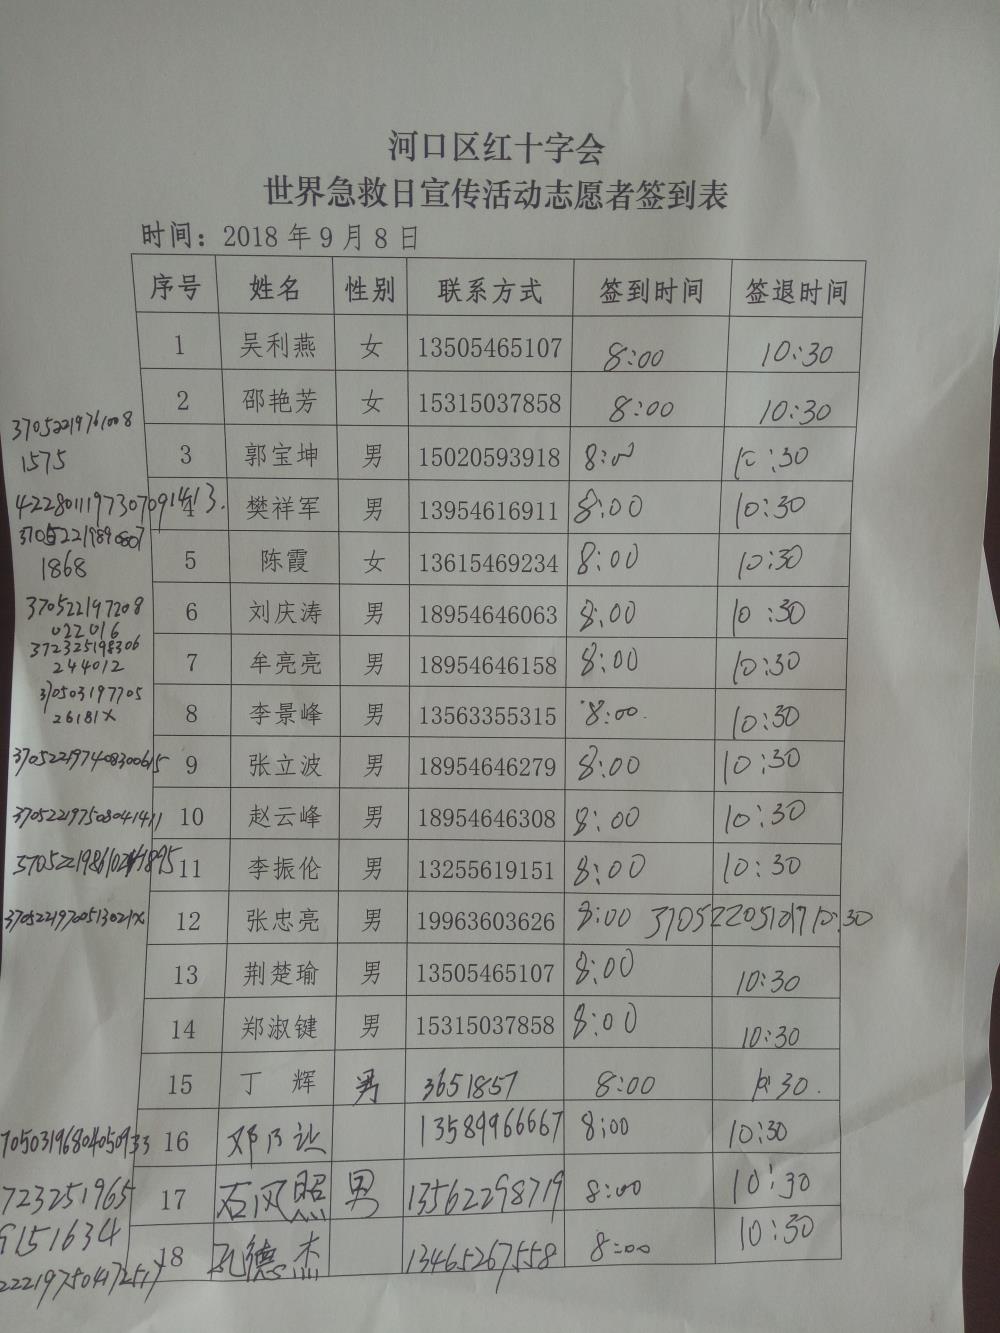 河口区红十字会
世界急救日宣传活动志愿者签到表
时间：2018年9月8日
序号 姓名 性别 联系方式 签到时间 签退时间
1 吴利燕 女 13505465107 8:00 10:30
2 邵艳芳 女 15315037858 8:00 10:30
3 郭宝坤 男 15020593918 8:00 10:30
4 樊祥军 男 13954616911 8:00 10:30
5 陈霞 女 13615469234 8:00 10:30
6 刘庆涛 男 18954646063 8:00 10:30
7 牟亮亮 男 18954646158 8:00 10:30
8 李景峰 男 13563355315 8:00 10:30
9 张立波 男 18954646279 8:00 10:30
10 赵云峰 男 18954646308 8:00 10:30
11 李振伦 男 13255619151 8:00 10:30
12 张忠亮 男 19963603626 8:00 10:30
13 荆楚瑜 男 13505465107 8:00 10:30
14 郑淑键 男 15315037858 8:00 10:30
15 丁辉 男 3651857 8:00 10:30
16 邓乃让 13589966667 8:00 10:30
17 石风照 男 13562298719 8:00 10:30
18 孔德杰 13465267558 8:00 10:30